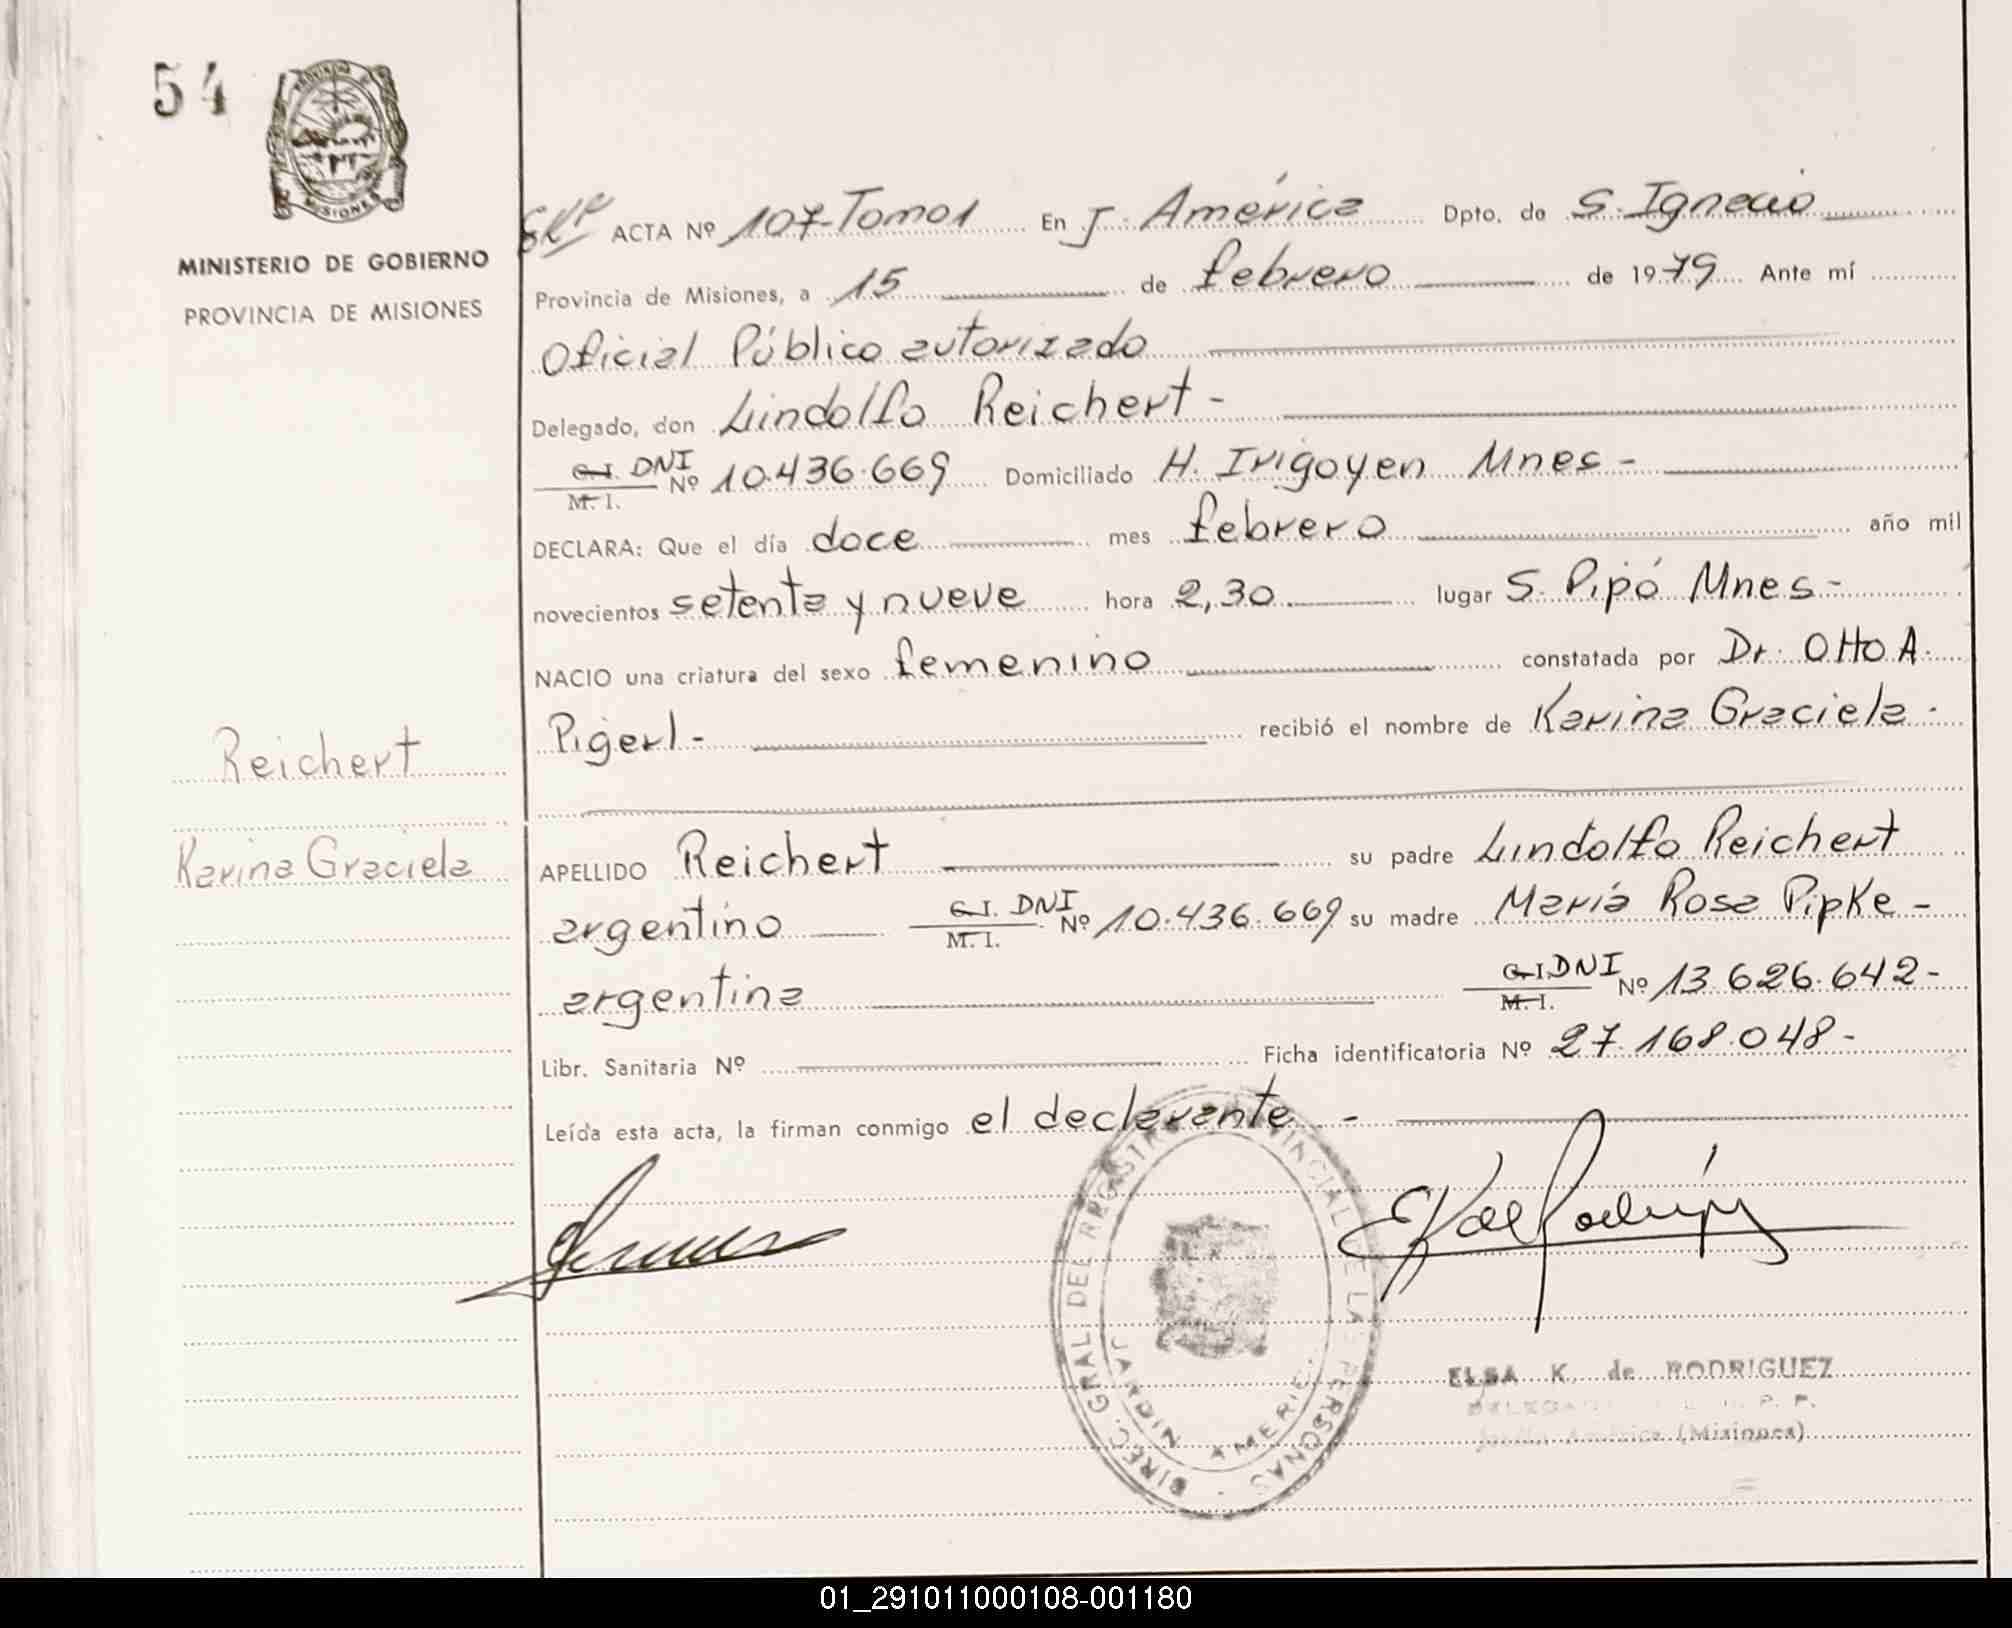 54
PROVINCIA DE
MISIONES
MINISTERIO DE GOBIERNO
PROVINCIA DE MISIONES
ACTA Nº 107-Tomo1 En J. América Dpto. de S. Ignacio
Provincia de Misiones, a 15 de febrero de 1979 Ante mí
Oficial Público autorizado
Delegado, don Lindolfo Reichert -
C.I. DNI
M. I. Nº 10.436.669 Domiciliado H. Irigoyen Mnes -
DECLARA: Que el día doce mes febrero año mil
novecientos setenta y nueve hora 2,30 lugar S. Pipó Mnes -
NACIO una criatura del sexo femenino constatada por Dr. Otto A.
Pigerl - recibió el nombre de Karina Graciela -
Reichert
Karina Graciela
APELLIDO Reichert su padre Lindolfo Reichert
argentino C.I. DNI M. I. Nº 10.436.669 su madre María Rosa Pipke -
argentina C.I. DNI M. I. Nº 13.626.642 -
Libr. Sanitaria Nº Ficha identificatoria Nº 27.168.048 -
Leída esta acta, la firman conmigo el declarante -
DIREC. GRAL. DEL REGISTRO PROVINCIAL DE LA PERSONAS
ELSA K. de RODRIGUEZ
Jardín América (Misiones)
01_291011000108-001180